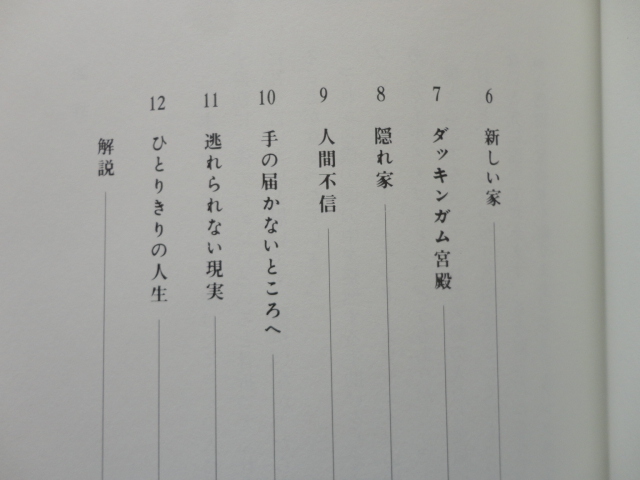 6 新しい家
7 ダッキンガム宮殿
8 隠れ家
9 人間不信
10 手の届かないところへ
11 逃れられない現実
12 ひとりきりの人生
解説